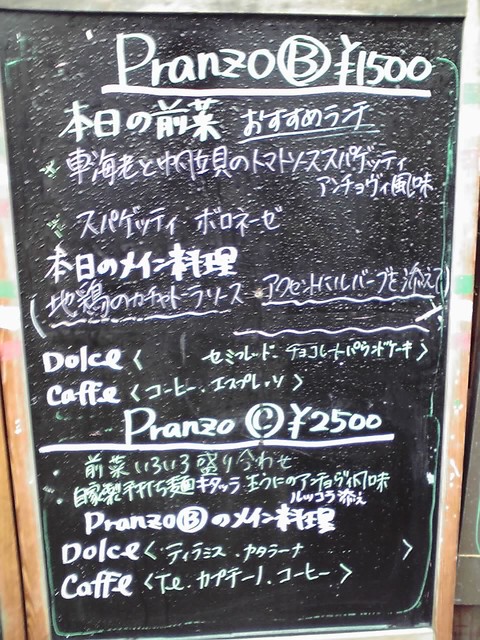 Pranzo Ⓑ ¥1500
本日の前菜 おすすめランチ
車海老と小柱のトマトソーススパゲッティ
アンチョヴィ風味
スパゲッティ ボロネーゼ
本日のメイン料理
(地鶏のカチャトーラソース アクセントにルバーブを添えて)
Dolce < セミフレード・チョコレートパウンドケーキ >
Caffe < コーヒー・エスプレッソ >
Pranzo Ⓒ ¥2500
・前菜いろいろ盛り合わせ
・自家製手打ち麺キタッラ 生うにのアンチョヴィ風味
ルッコラ添え
PranzoⒷのメイン料理
Dolce < ティラミス・カタラーナ >
Caffe < Te・カプチーノ・コーヒー >